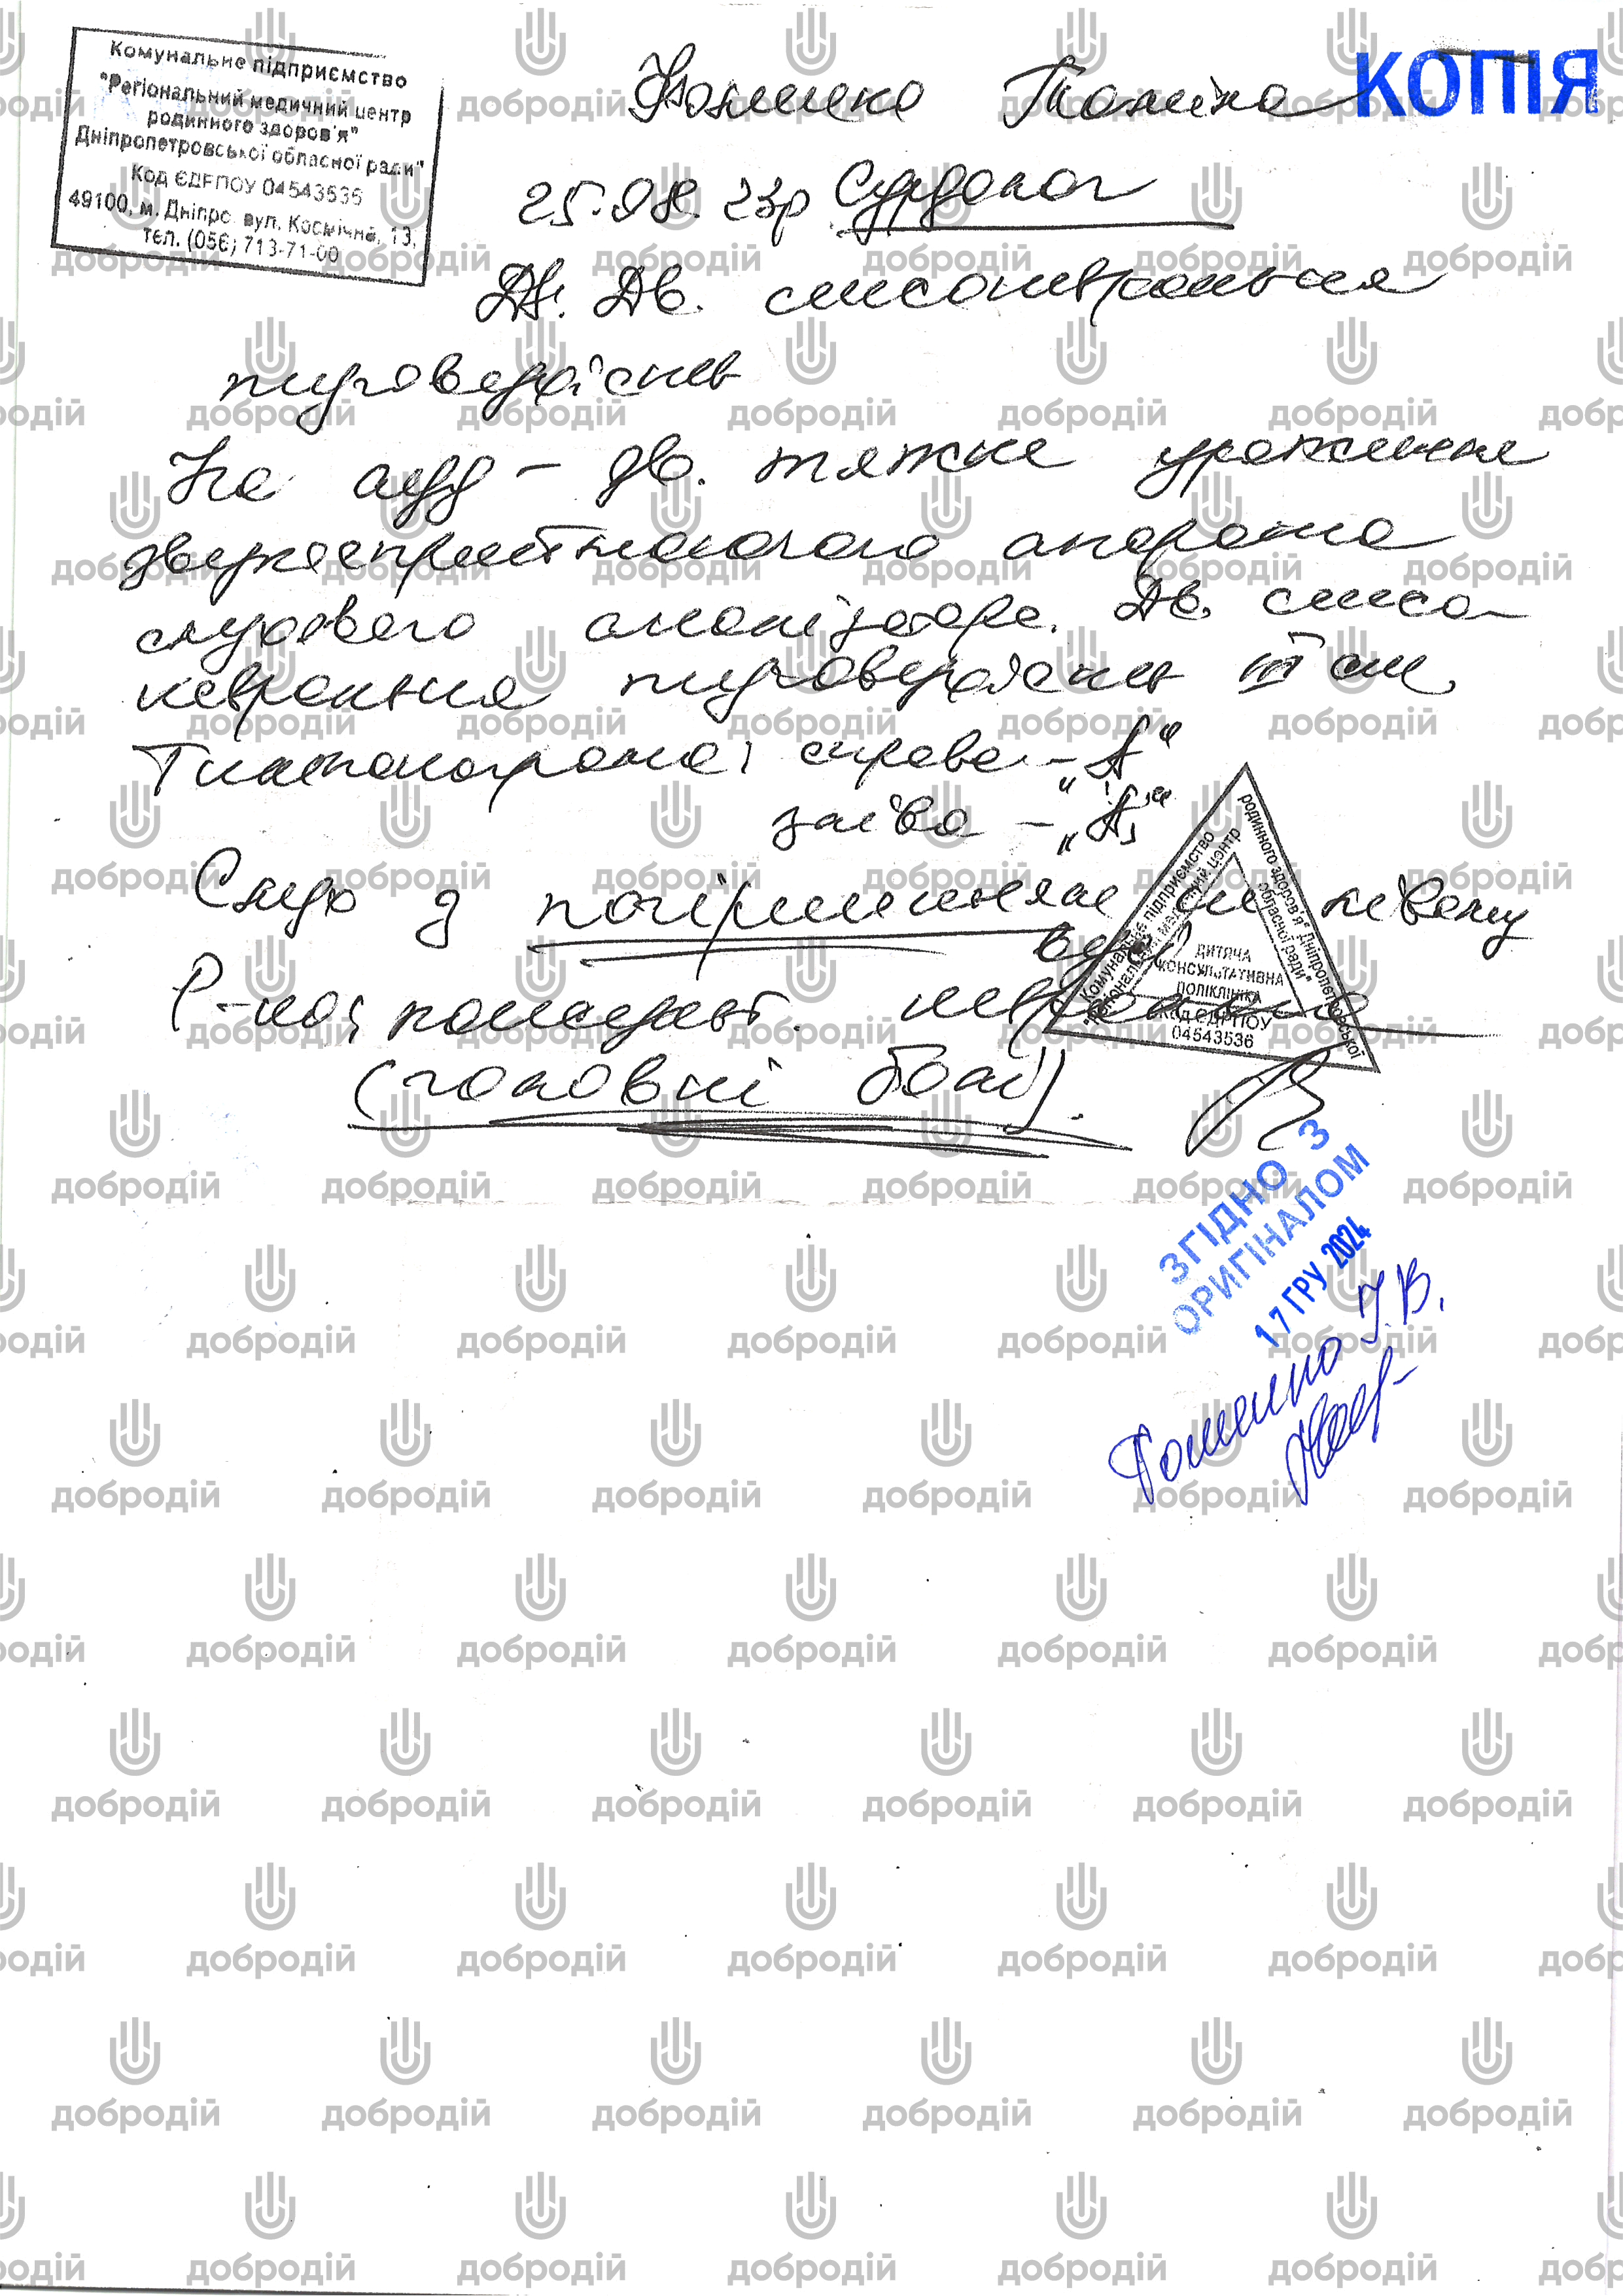 Комунальне підприємство
"Регіональний медичний центр
родинного здоров'я"
Дніпропетровської обласної ради"
Код ЄДРПОУ 04543536
49100, м. Дніпро, вул. Космічна, 13,
тел. (056) 713-71-00
КОПІЯ
25.08.23р Сурдолог
Дз. Дв. сенсоневральна
приглухуватість
На ауд – дв. тяжке ураження
звукосприймаючого апарата
слухового аналізатора. Дв. сенсо-
невральна III ст.
Тимпанограма: справа – „А"
зліва – „А"
Слух з погіршенням на лівому
вусі
Р-но: консульт. невролога
(головні болі).
Комунальне підприємство
"Регіональний медичний центр
родинного здоров'я" Дніпропетровської
обласної ради"
ДИТЯЧА
КОНСУЛЬТАТИВНА
ПОЛІКЛІНІКА
Код ЄДРПОУ
04543536
ЗГІДНО З
ОРИГІНАЛОМ
17 ГРУ 2024
І.В.
добродій